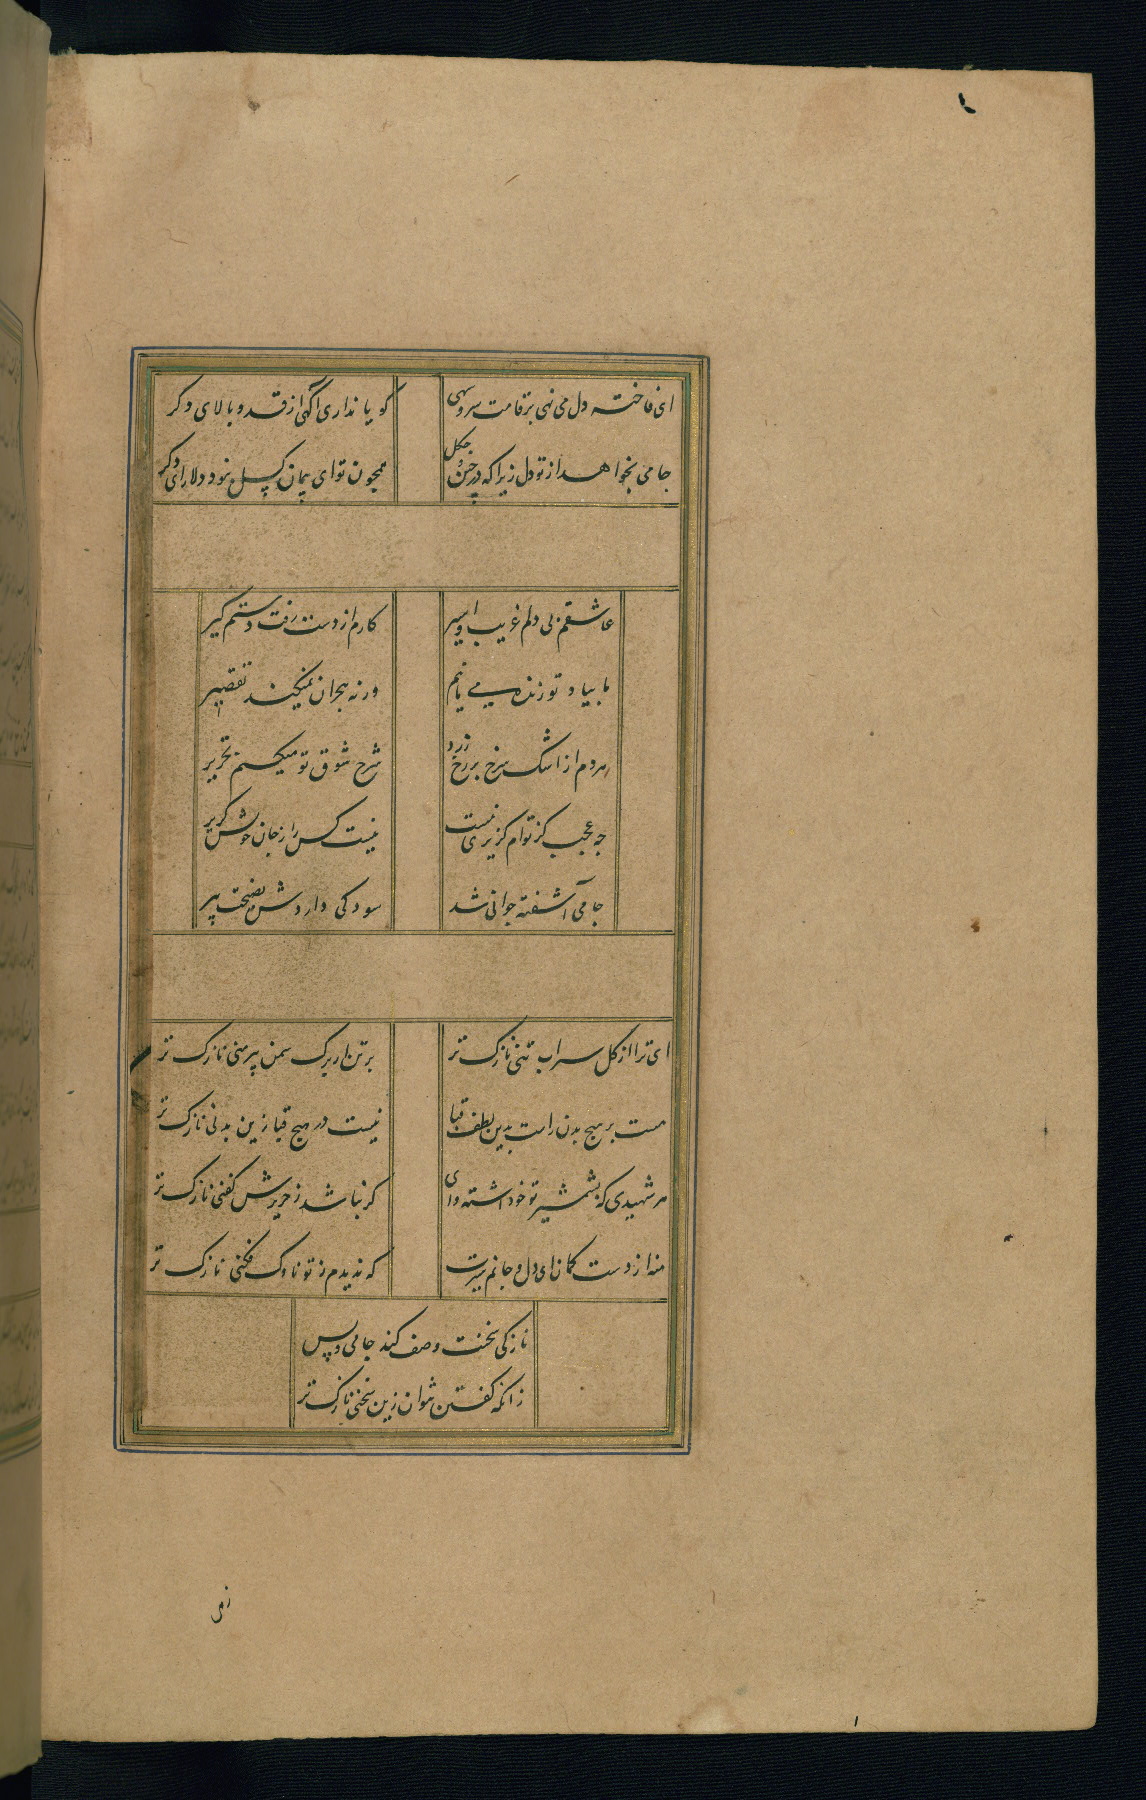 ای فاخته دل می نهی بر قامت سرو سهی کویا نداری آکهی از قد و بالای دکر
جامی نخواهد از تو دل زیرا که در چین و چکل همچون تو ای پیمان کسل نبود دلارای دکر
عاشقم بی دلم غریب و اسیر کارم از دست رفت دستم کیر
ما بیاد تو زنده می مانیم ورنه هجران نمیکند تقصیر
هر دم از اشک سرخ بر رخ زرد شرح شوق تو میکنم تحریر
چه عجب کز توام کزیری نیست نیست کس را ز جان خویش کزیر
جامی آشفته جوانی شد سود کی داردش نصیحت پیر
ای ترا از کل سیراب تنی نازک تر بر تن از برک سمن پیرهنی نازک تر
هست بر هیچ بدن راست بدین لطف قبا نیست در هیچ قبا زین بدنی نازک تر
هر شهیدی که بشمشیر تو خود اشته وای کر نباشد ز حریرش کفنی نازک تر
منه از دست کمان ای دل و جانم سپرت که ندیدم ز تو ناوک فکنی نازک تر
نازکی سخنت وصف کند جامی و بس
زانکه کفتن نتوان زین سخنی نازک تر